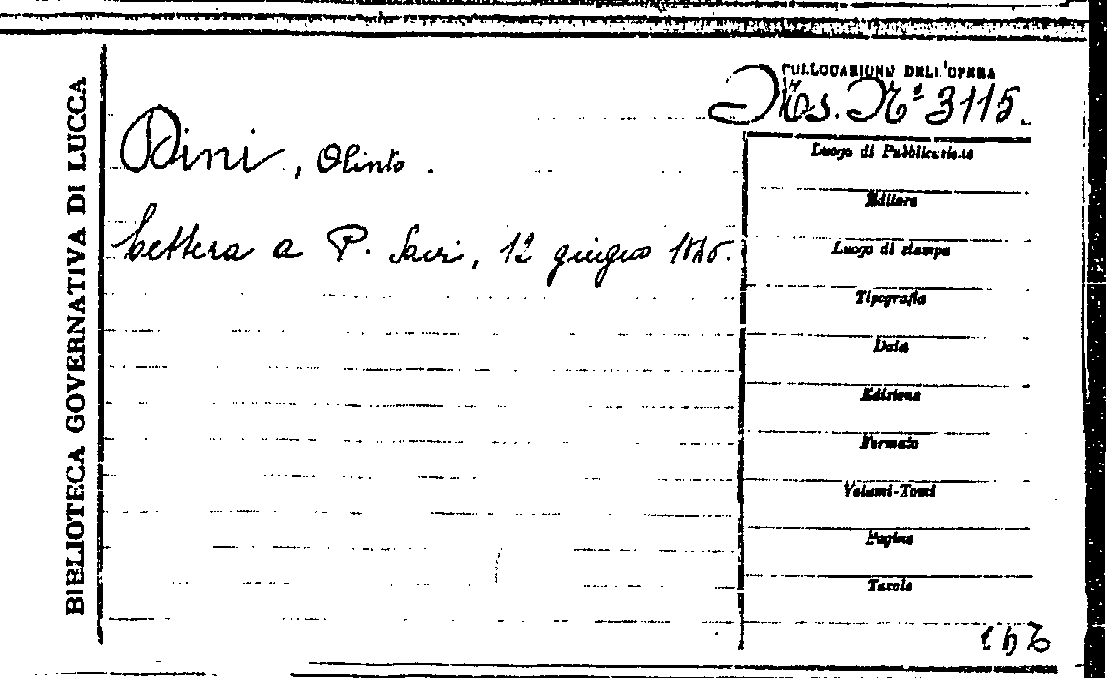 BIBLIOTECA GOVERNATIVA DI LUCCA
COLLOCAZIONE DELL'OPERA
Ms. Nº 3115.
Dini, Olinto.
Lettera a P. 12 giugno
Luogo di Pubblicazione
Editore
Luogo di stampa
Tipografia
Data
Edizione
Formato
Volumi-Tomi
Pagine
Tavole